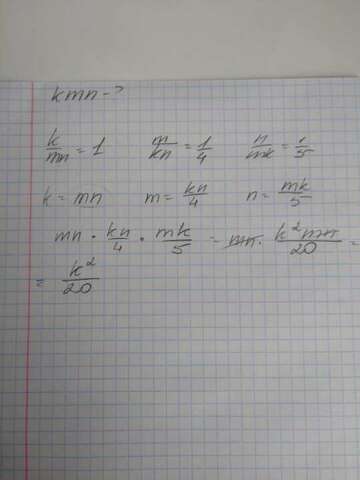 kmn - ?
k/mn = 1 m/kn = 1/4 n/mk = 1/5
k = mn m = kn/4 n = mk/5
mn · kn/4 · mk/5 = mn · k²mn/20 =
= k²/20